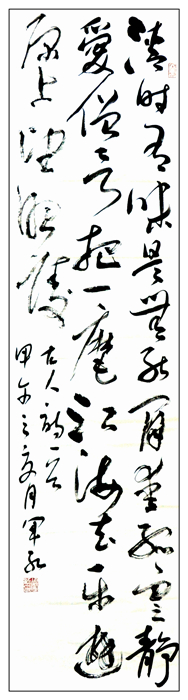 清时有味是无能闲爱孤云静
爱僧欲把一麾江海去乐游
原上望昭陵
古人诗一首
甲午之夏月军红